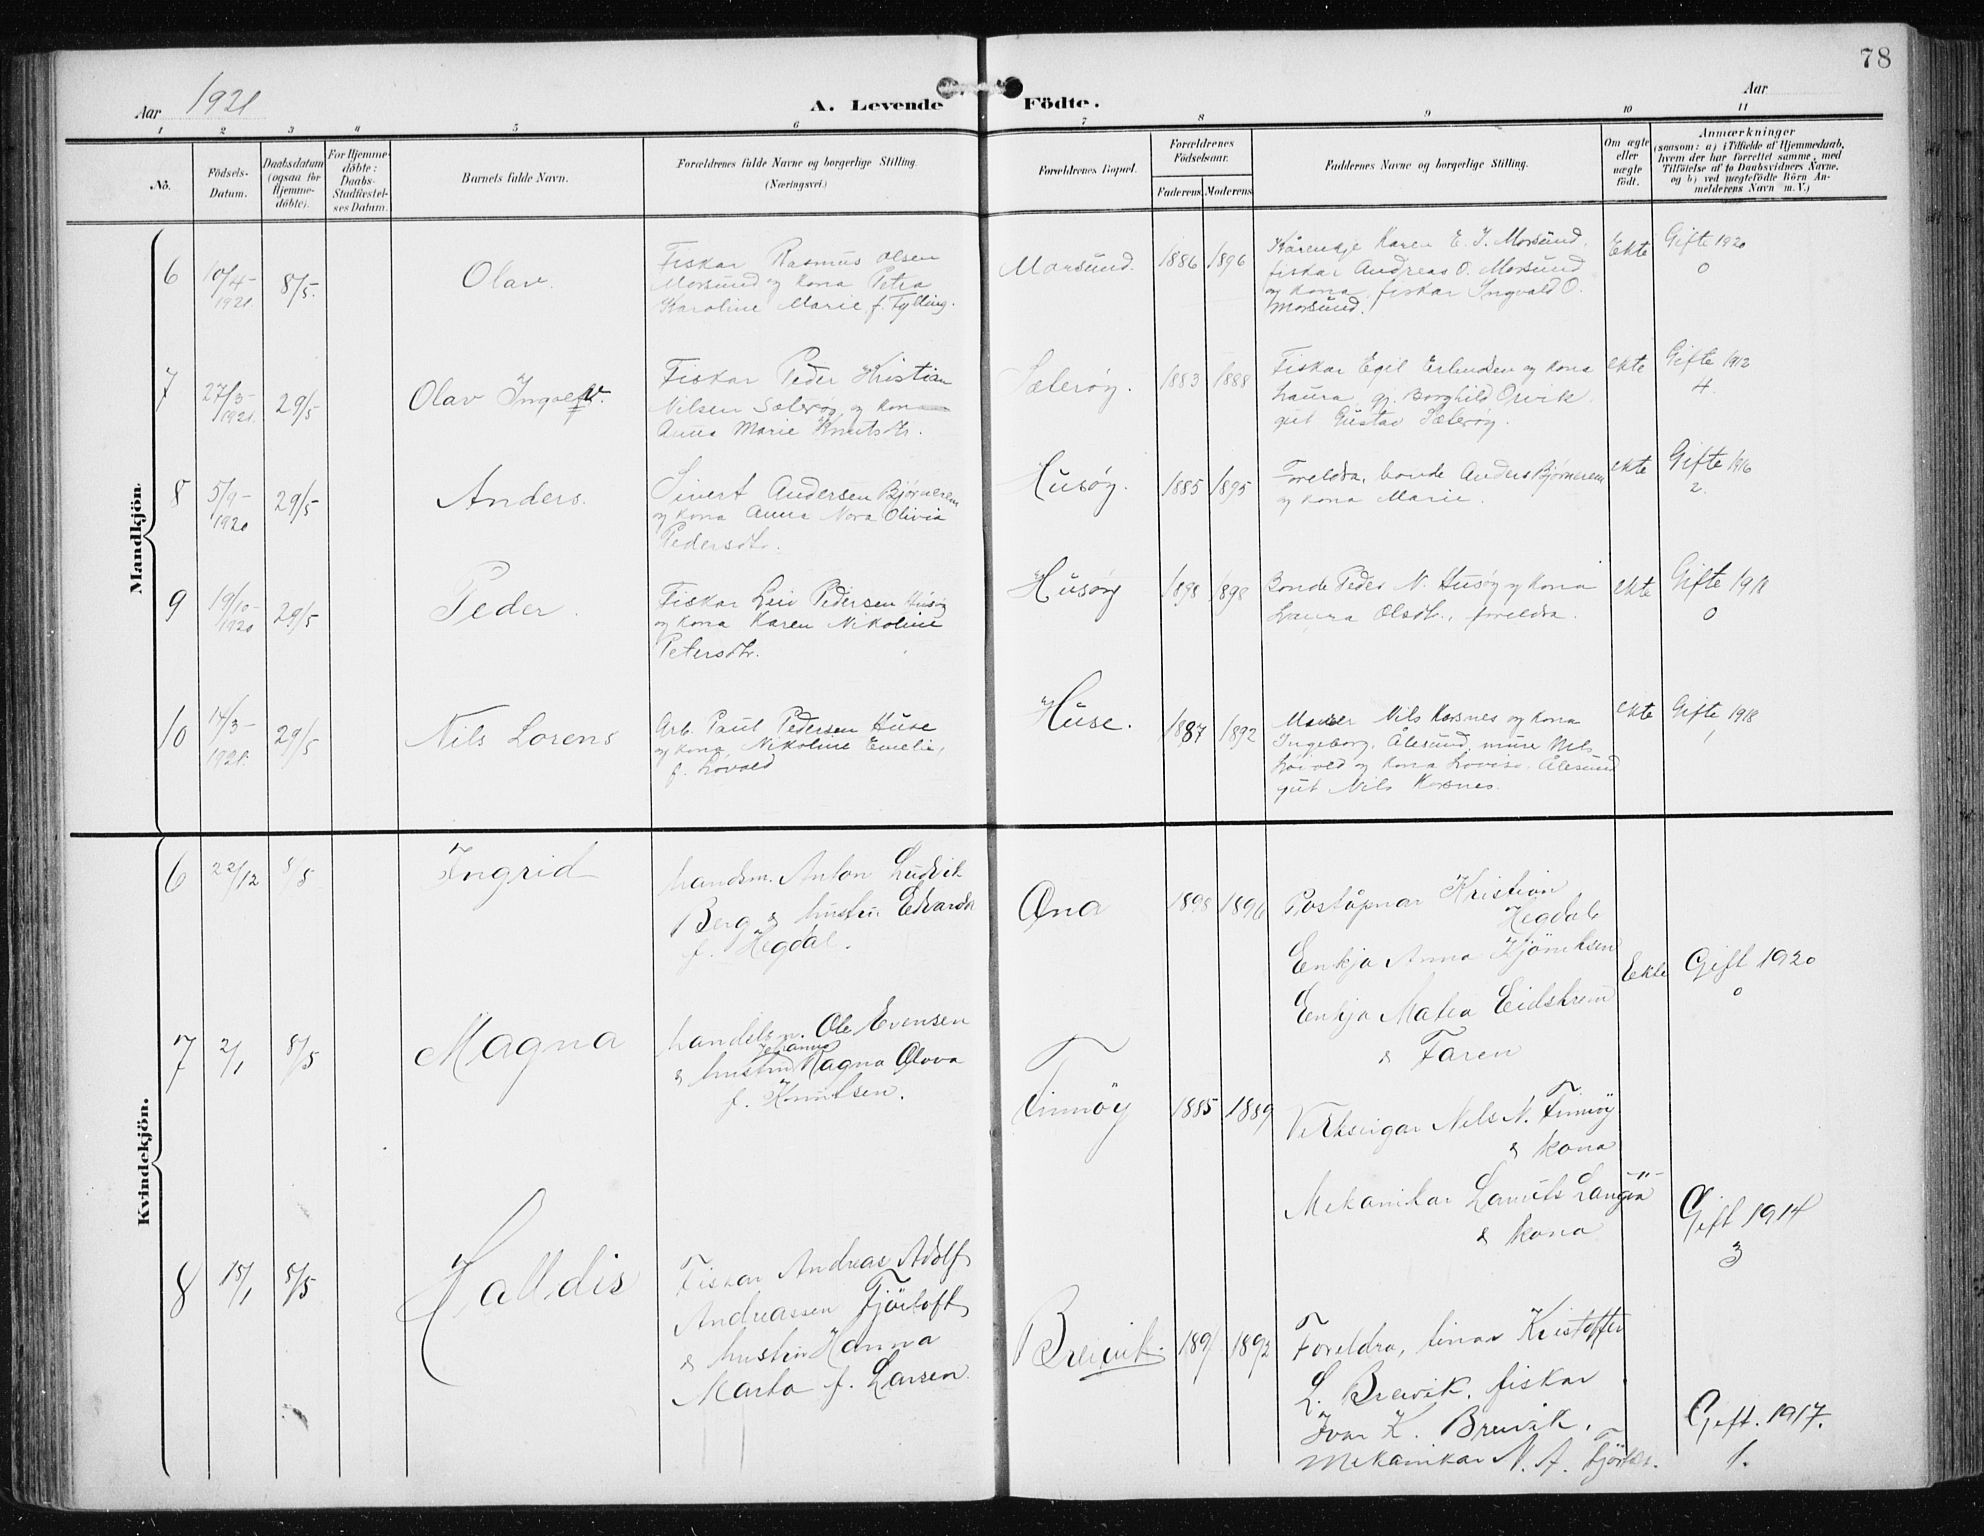 78
Aar 1921
A. Levende Födte.
Aar
1 2 3 4 5 6 7 8 9 10 11
No.
Födsels-
Datum.
Daabsdatum
(ogsaa for
Hjemme-
döbte).
For Hjemme-
döbte:
Daabs-
Stadfæstel-
ses Datum.
Barnets fulde Navn.
Forældrenes fulde Navne og borgerlige Stilling.
(Næringsvei.)
Forældrenes Bopæl.
Forældrenes
Födselsaar.
Faderens Moderens
Faddernes Navne og borgerlige Stilling.
Om ægte
eller
uægte
födt.
Anmærkninger
(saasom: a) i Tilfælde af Hjemmedaab,
hvem der har forrettet samme, med
Tilföielse af to Daabsvidners Navne,
og b) ved uægtefödte Börn An-
melderens Navn m. V.)
Mandkjön.
6
10/4-
1921
8/5.
Olav.
Fiskar Rasmus Olsen
Morsund og kona Petra
Karoline Marie f. Tylling.
Morsund.
1886 1896
Karen E. J. Morsund,
fiskar Andreas O. Morsund
og kona, fiskar Ingvald O.
Morsund.
Ekte
Gifte 1920
0
7
27/3-
1921.
29/5
Olav Ingolv.
Fiskar Peder Kristian
Nilsen Sæterøy og kona
Anna Marie Knutsdtr.
Sæterøy.
1883 1888
Fiskar Egil Erlandsen og kona
Laura, gj. Borghild Orvik
gut Gustav Sæterøy.
ekte
Gifte 1912
4
8
5/9-
1920
29/5
Anders.
Sivert Andersen Bjørnerem
og kona Anna Nora Olivia
Pedersdtr.
Husøy.
1885 1895
Foreldra, bonde Anders Bjørnerem
og kona Marie.
ekte
Gifte 1916
2.
9
19/10-
1920
29/5
Peder.
Fiskar Leiv Pedersen Husøy
og kona Karen Nikoline
Petersdtr.
Husøy
1898 1898
Bonde Peder N. Husøy og kona
Laura Olsdtr., foreldra.
ekte
Gifte 1918
0
10
14/3-
1921.
29/5
Nils Lorens
Arb. Paul Pedersen Huse
og kona Nikoline Emelie,
f. Lovold
Huse.
1887 1892
Nils Korsnes og kona
Ingeborg, Ålesund, Nils
og kona Lovise, Ålesund
gut Nils Korsnes.
ekte
Gifte 1918
1
Kvindekjön.
6
22/12
8/5
Ingrid
Handsm. Anton Ludvik
Berg & hustru Edvarda
f. Hegdal.
Ona
1898 1896
Poståpnar Kristian
Hegdal
Enkja Anna
Enkja Matea Eidskrem
& Faren
Ekte
Gift 1920
0
7
2/1
8/5
Magna
Handelsm. Ole Evensen
Johanna
& hustru Magna Olova
f. Knutsen.
Finnøy
1885 1889
Nils N. Finnøy
& kona
Mekanikar
& kona
-"-
Gift 1914
3
8
15/1
8/5
Halldis
Fiskar Andreas Adolf
Andreassen Fjörtoft
& hustru Hanna
Marta f. Larsen.
Breivik.
1891 1892
Foreldra, Kristoffer
L. Breivik, fiskar
Ivar K. Breivik,
Mekanikar N. A.
Gift. 1917.
1.